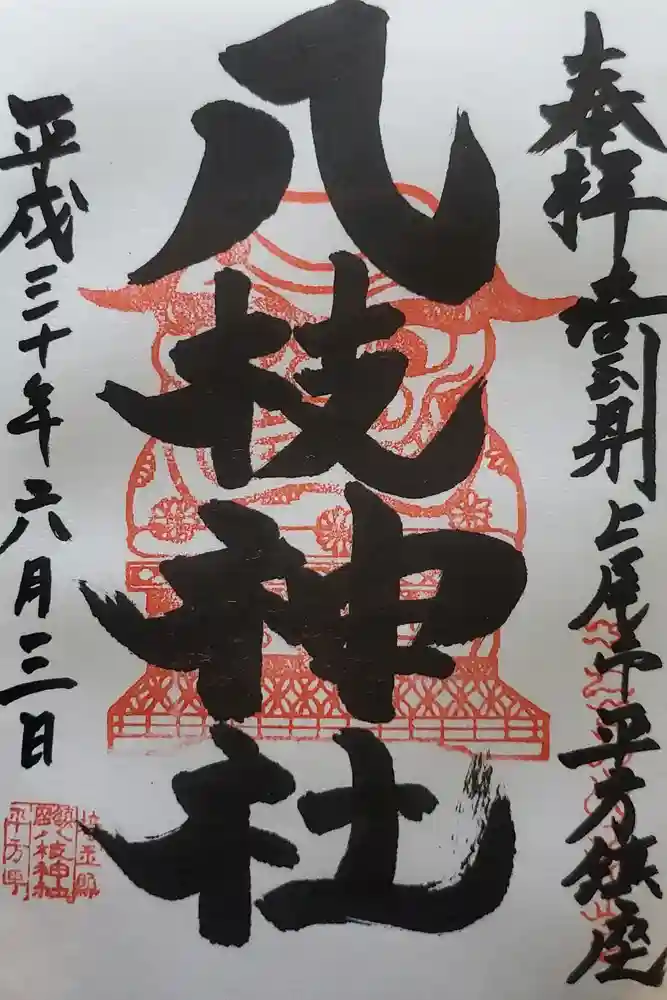 奉拝
上尾市平方鎮座
八枝神社
平成三十年六月三日
埼玉縣
八枝神社
平方町